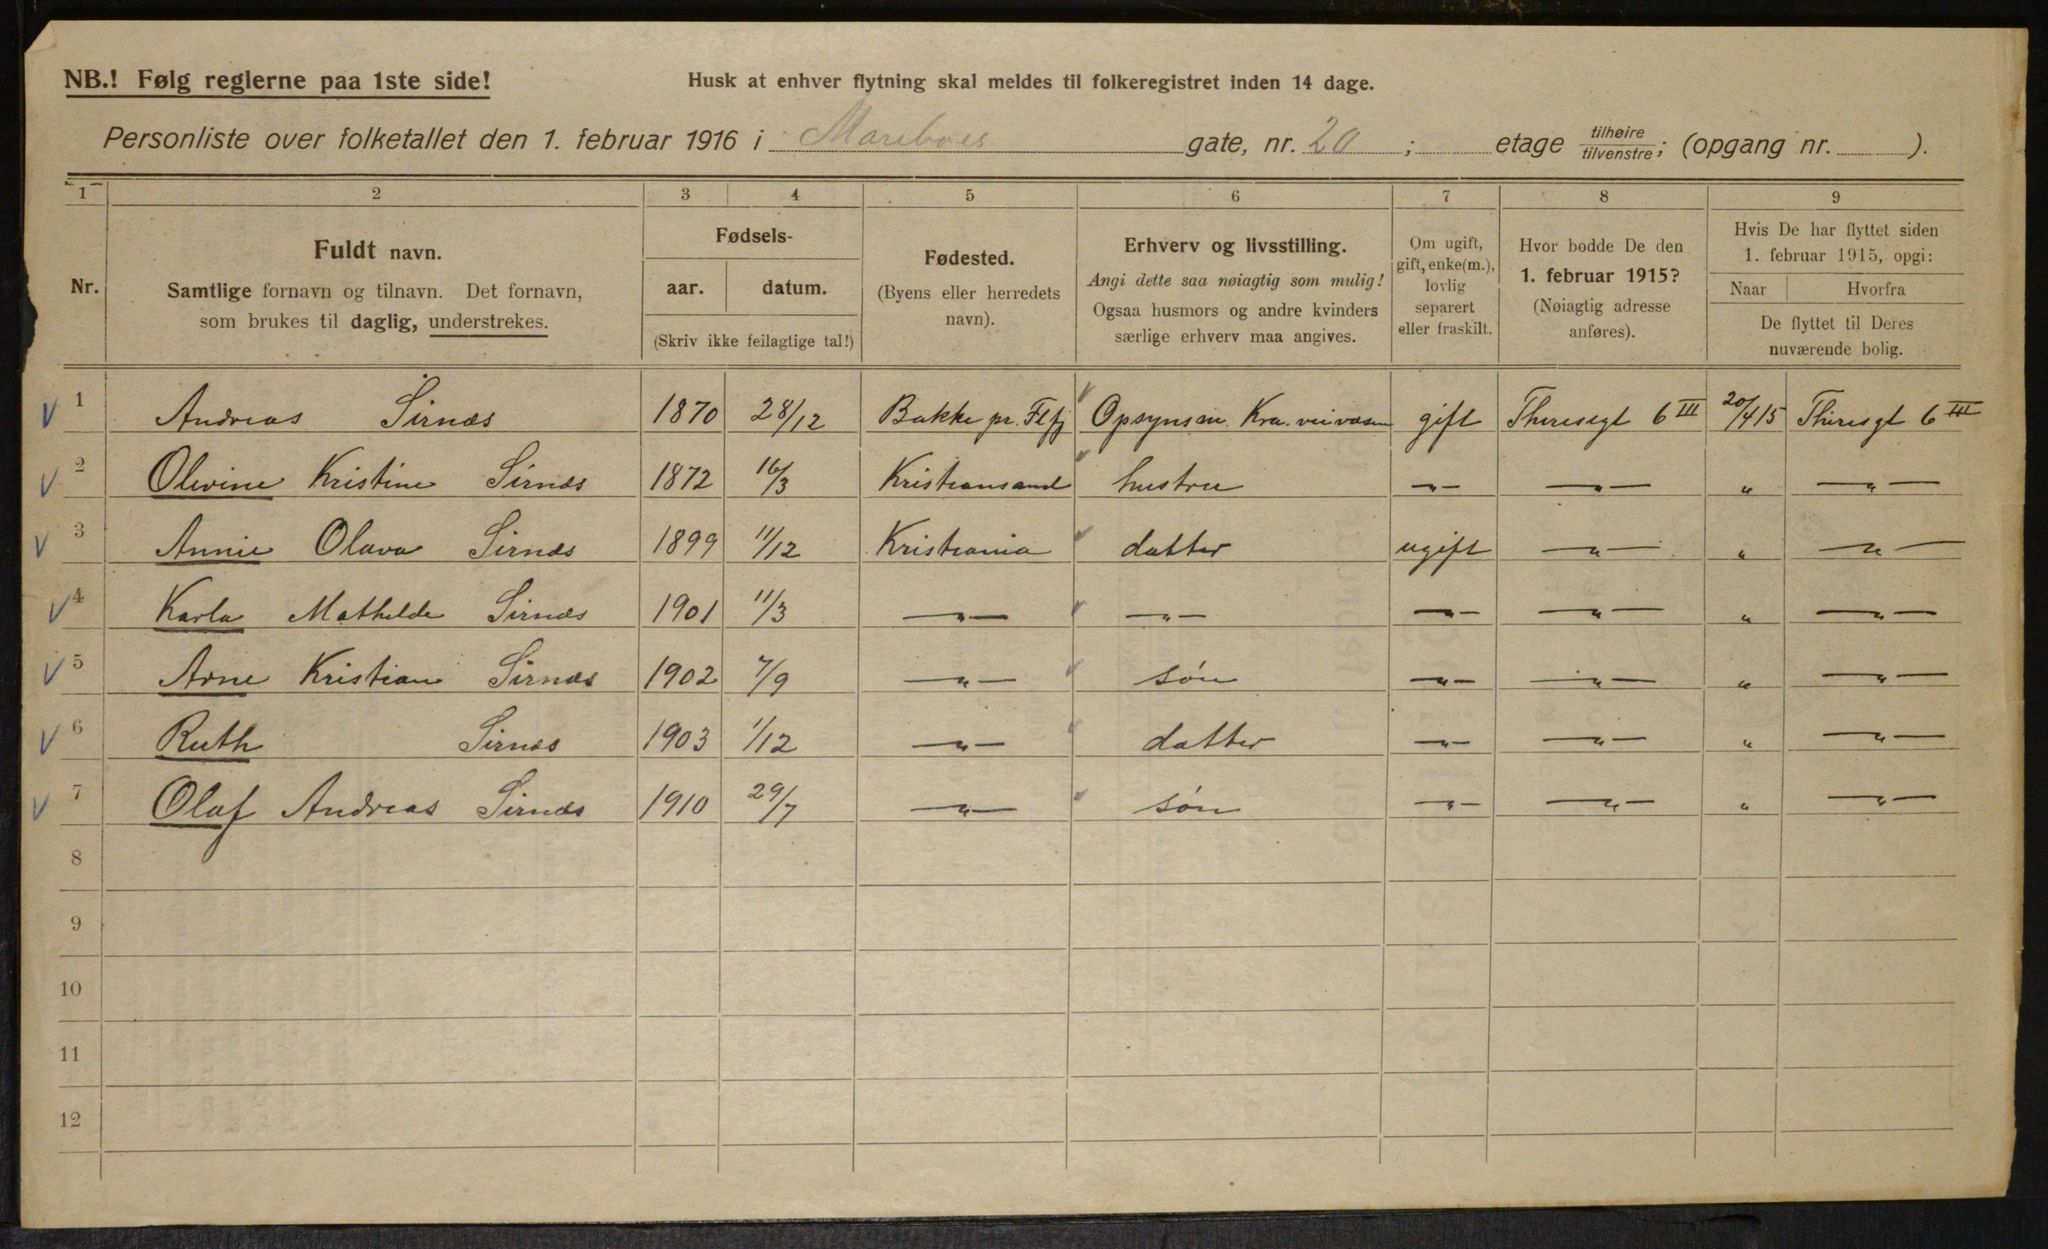 NB.! Følg reglerne paa 1ste side!
Husk at enhver flytning skal meldes til folkeregistret inden 14 dage.
Personliste over folketallet den 1. februar 1916 i Mareboes gate, nr. 20 ; etage tilhøire/tilvenstre; (opgang nr. ).
1 2 3 4 5 6 7 8 9
Nr.
Fuldt navn.
Samtlige fornavn og tilnavn. Det fornavn,
som brukes til daglig, understrekes.
Fødsels-
aar. datum.
(Skriv ikke feilagtige tal!)
Fødested.
(Byens eller herredets
navn).
Erhverv og livsstilling.
Angi dette saa nøiagtig som mulig!
Ogsaa husmors og andre kvinders
særlige erhverv maa angives.
Om ugift,
gift, enke(m.),
lovlig
separert
eller fraskilt.
Hvor bodde De den
1. februar 1915?
(Nøiagtig adresse
anføres).
Hvis De har flyttet siden
1. februar 1915, opgi:
Naar Hvorfra
De flyttet til Deres
nuværende bolig.
1 Andreas Sirnæs 1870 28/12 Bakke pr. Flfj Opsynsm. Kra. veivæsen gift Theresegt 6 III 20/4 15 Theresgt 6 III
2 Olevine Kristine Sirnæs 1872 16/3 Kristiansand hustru -"- -"- " -"-
3 Annie Olava Sirnæs 1899 11/12 Kristiania datter ugift -"- " -"-
4 Karla Mathilde Sirnæs 1901 11/3 -"- -"- -"- -"- " -"-
5 Arne Kristian Sirnæs 1902 7/9 -"- søn -"- -"- " -"-
6 Ruth Sirnæs 1903 1/12 -"- datter -"- -"- " -"-
7 Olaf Andreas Sirnæs 1910 29/7 -"- søn -"- -"- " -"-
8
9
10
11
12